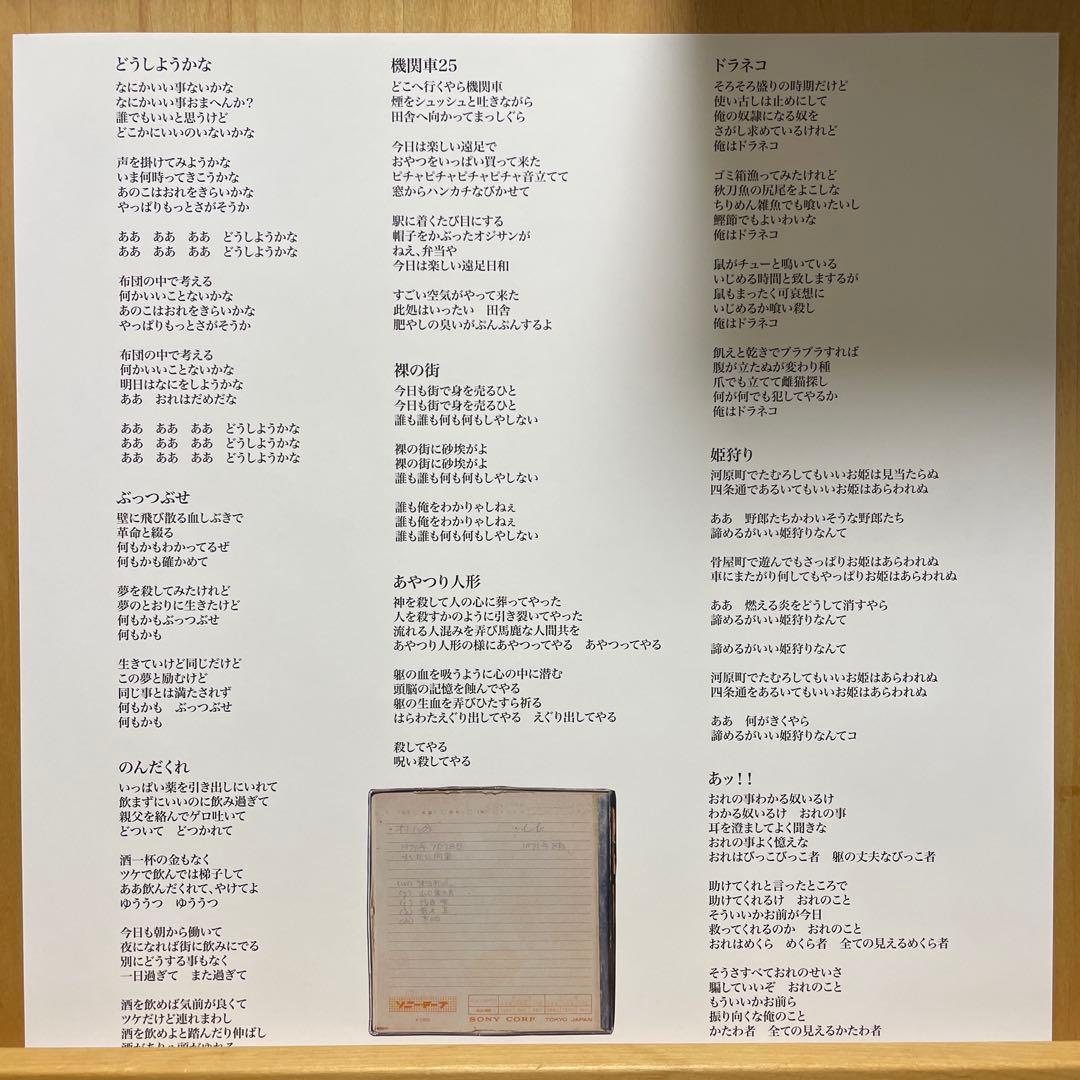 どうしようかな
なにかいい事ないかな
なにかいい事おまへんか?
誰でもいいと思うけど
どこかにいいのいないかな
声を掛けてみようかな
いま何時ってきこうかな
あのこはおれをきらいかな
やっぱりもっとさがそうか
ああ　ああ　ああ　どうしようかな
ああ　ああ　ああ　どうしようかな
布団の中で考える
何かいいことないかな
あのこはおれをきらいかな
やっぱりもっとさがそうか
布団の中で考える
何かいいことないかな
明日はなにをしようかな
ああ　おれはだめだな
ああ　ああ　ああ　どうしようかな
ああ　ああ　ああ　どうしようかな
ああ　ああ　ああ　どうしようかな
ぶっつぶせ
壁に飛び散る血しぶきで
革命と綴る
何もかもわかってるぜ
何もかも確かめて
夢を殺してみたけれど
夢のとおりに生きたけど
何もかもぶっつぶせ
何もかも
生きていけど同じだけど
この夢と励むけど
同じ事とは満たされず
何もかも　ぶっつぶせ
何もかも
のんだくれ
いっぱい薬を引き出しにいれて
飲まずにいいのに飲み過ぎて
親父を絡んでゲロ吐いて
どついて　どつかれて
酒一杯の金もなく
ツケで飲んでは梯子して
ああ飲んだくれて、やけてよ
ゆううつ　ゆううつ
今日も朝から働いて
夜になれば街に飲みにでる
別にどうする事もなく
一日過ぎて　また過ぎて
酒を飲めば気前が良くて
ツケだけど連れまわし
酒を飲めよと踏んだり伸ばし
機関車25
どこへ行くやら機関車
煙をシュッシュと吐きながら
田舎へ向かってまっしぐら
今日は楽しい遠足で
おやつをいっぱい買って来た
ピチャピチャピチャピチャ音立てて
窓からハンカチなびかせて
駅に着くたび目にする
帽子をかぶったオジサンが
ねえ、弁当や
今日は楽しい遠足日和
すごい空気がやって来た
此処はいったい　田舎
肥やしの臭いがぷんぷんするよ
裸の街
今日も街で身を売るひと
今日も街で身を売るひと
誰も誰も何も何もしやしない
裸の街に砂埃がよ
裸の街に砂埃がよ
誰も誰も何も何もしやしない
誰も俺をわかりゃしねぇ
誰も俺をわかりゃしねぇ
誰も誰も何も何もしやしない
あやつり人形
神を殺して人の心に葬ってやった
人を殺すかのように引き裂いてやった
流れる人混みを弄び馬鹿な人間共を
あやつり人形の様にあやつってやる　あやつってやる
躯の血を吸うように心の中に潜む
頭脳の記憶を蝕んでやる
躯の生血を弄びひたすら祈る
はらわたえぐり出してやる　えぐり出してやる
殺してやる
呪い殺してやる
ソニーテープ
SONY CORP. TOKYO JAPAN
ドラネコ
そろそろ盛りの時期だけど
使い古しは止めにして
俺の奴隷になる奴を
さがし求めているけれど
俺はドラネコ
ゴミ箱漁ってみたけれど
秋刀魚の尻尾をよこしな
ちりめん雑魚でも喰いたいし
鰹節でもよいわいな
俺はドラネコ
鼠がチューと鳴いている
いじめる時間と致しまするが
鼠もまったく可哀想に
いじめるか喰い殺し
俺はドラネコ
飢えと乾きでブラブラすれば
腹が立たぬが変わり種
爪でも立てて雌猫探し
何が何でも犯してやるか
俺はドラネコ
姫狩り
河原町でたむろしてもいいお姫は見当たらぬ
四条通であるいてもいいお姫はあらわれぬ
ああ　野郎たちかわいそうな野郎たち
諦めるがいい姫狩りなんて
骨屋町で遊んでもさっぱりお姫はあらわれぬ
車にまたがり何してもやっぱりお姫はあらわれぬ
ああ　燃える炎をどうして消すやら
諦めるがいい姫狩りなんて
諦めるがいい姫狩りなんて
河原町でたむろしてもいいお姫はあらわれぬ
四条通をあるいてもいいお姫はあらわれぬ
ああ　何がきくやら
諦めるがいい姫狩りなんてコ
あッ!!
おれの事わかる奴いるけ
わかる奴いるけ　おれの事
耳を澄ましてよく聞きな
おれの事よく憶えな
おれはびっこびっこ者　躯の丈夫なびっこ者
助けてくれと言ったところで
助けてくれるけ　おれのこと
そういいかお前が今日
救ってくれるのか　おれのこと
おれはめくら　めくら者　全ての見えるめくら者
そうさすべておれのせいさ
騙していいぞ　おれのこと
もういいかお前ら
振り向くな俺のこと
かたわ者　全ての見えるかたわ者